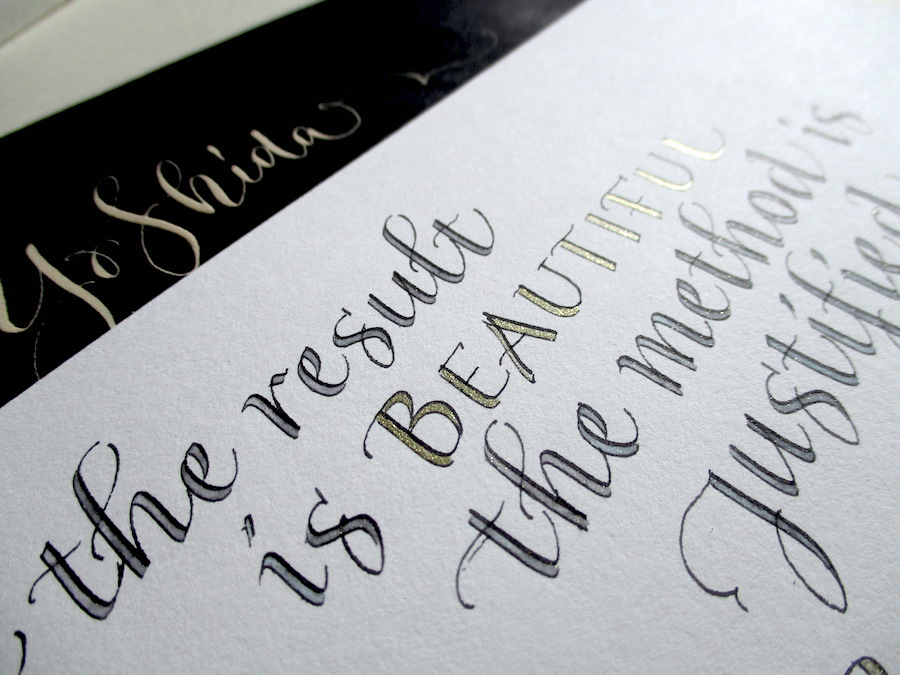 Yoshida
the result
is BEAUTIFUL
the method is
Justified